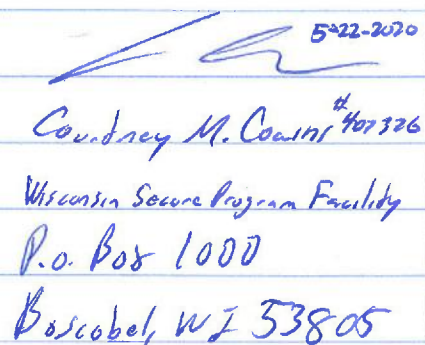 5-22-2020
Courtney M. #407326
Wisconsin Secure Program Facility
P.O. Box 1000
Boscobel, WI 53805